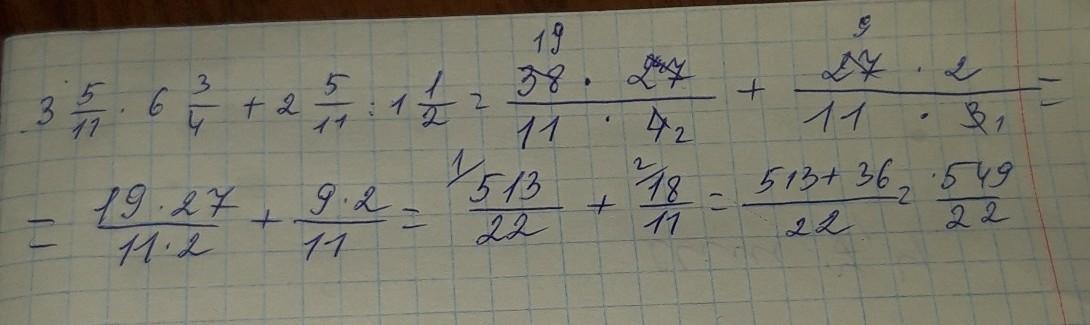 3 5/11 · 6 3/4 + 2 5/11 : 1 1/2 = 38 19 · 27 / 11 · 4 2 + 27 9 · 2 / 11 · 3 1 =
= 19 · 27 / 11 · 2 + 9 · 2 / 11 = 1/ 513 / 22 + 2/ 18 / 11 = 513 + 36 / 22 = 549 / 22